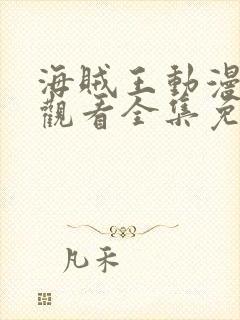 海賊王動漫
觀看全集免
凡禾